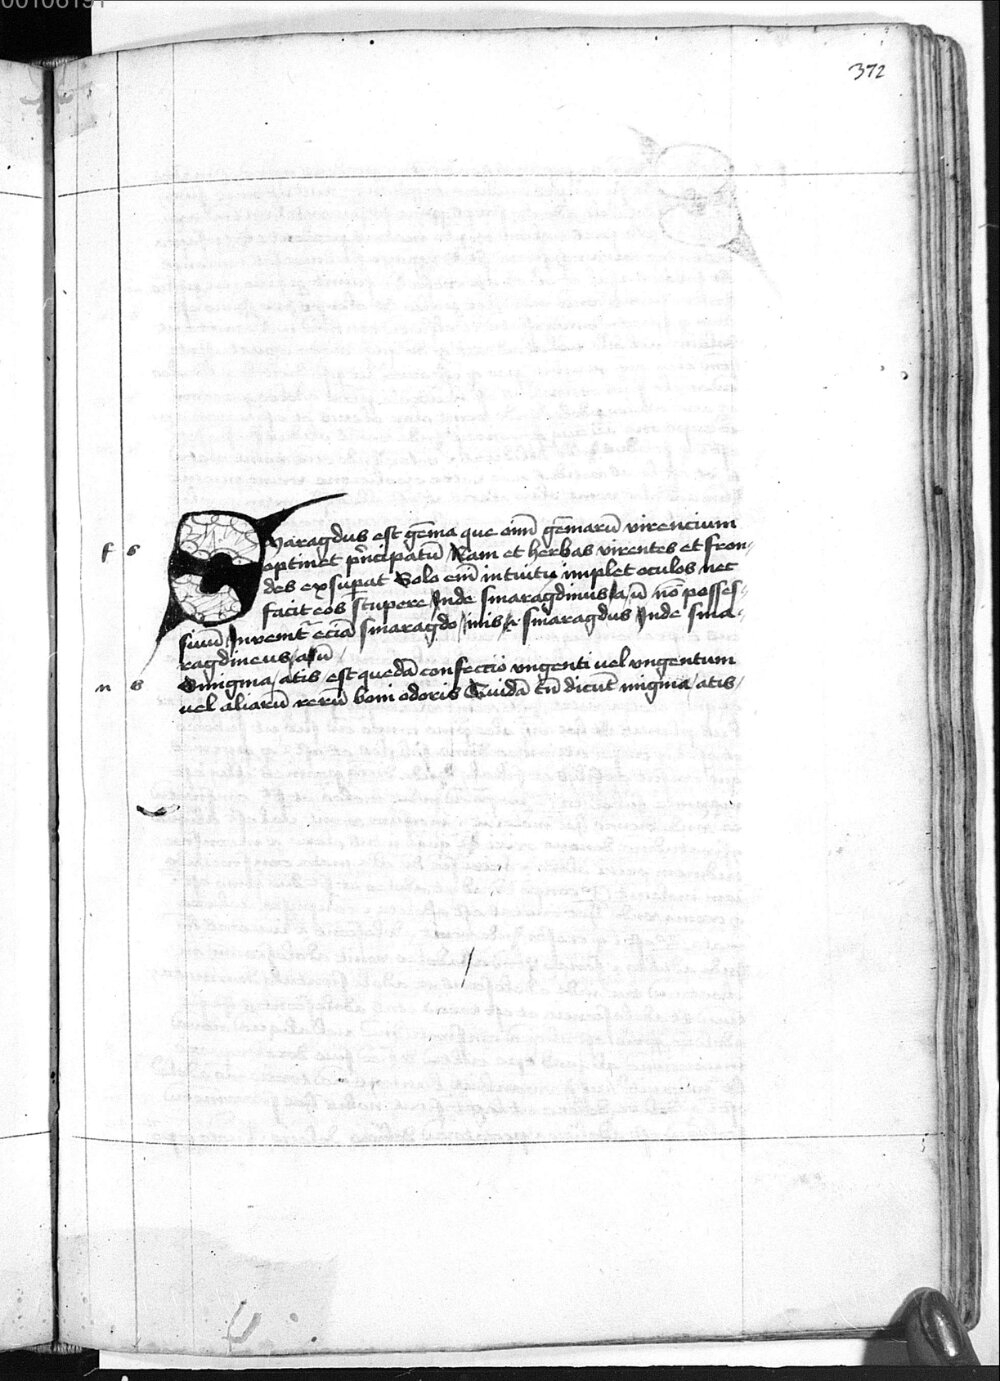 00106191
372
f s Smaragdus est gēma que oīm̄ gēmarū virencium
optinet p̄ncipatū Nam et herbas virentes et fron-
des exsuperat Solo em̄ intuitu implet oculos nec
facit eos stupere Inde smaragdinus /a/ ū nō posses-
siuū Inuenit᷑ eciā smaragdo /inis smaragdus Inde sma-
ragdineus /a/ ū /
n s Smigma /atis est quedā confectio vngenti vel vngentum
uel aliarū rerū boni odoris Quidā tn̄ dicūt migma /atis /